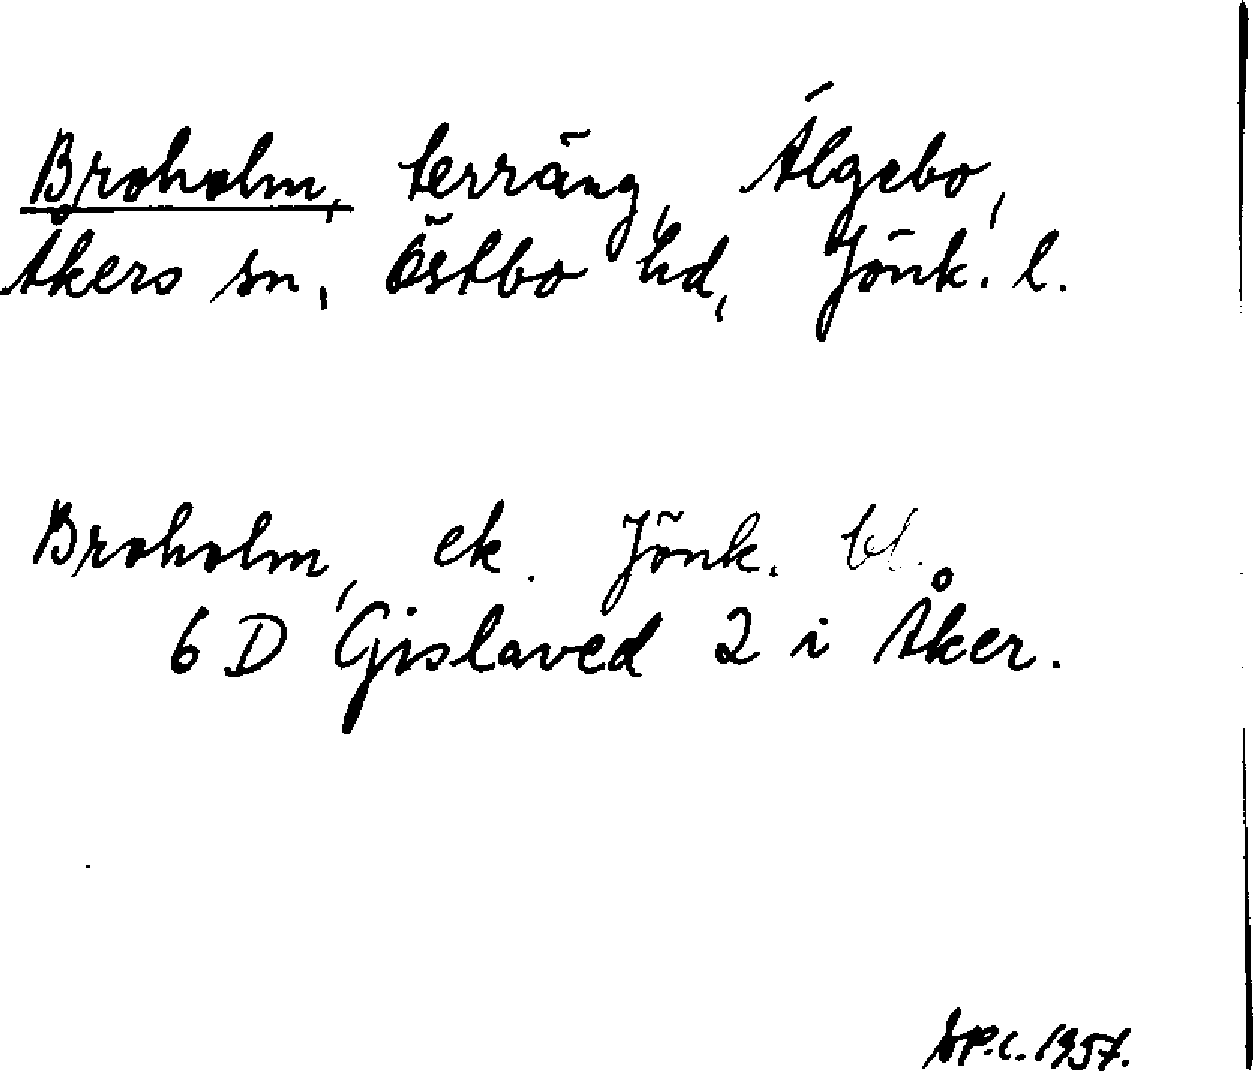 Broholm, terräng, Älgebo,
Åkers sn, Östbo hd, Jönk. l.
Broholm, ek. Jönk. bl.
6 D Gislaved 2 i Åker.
1957.